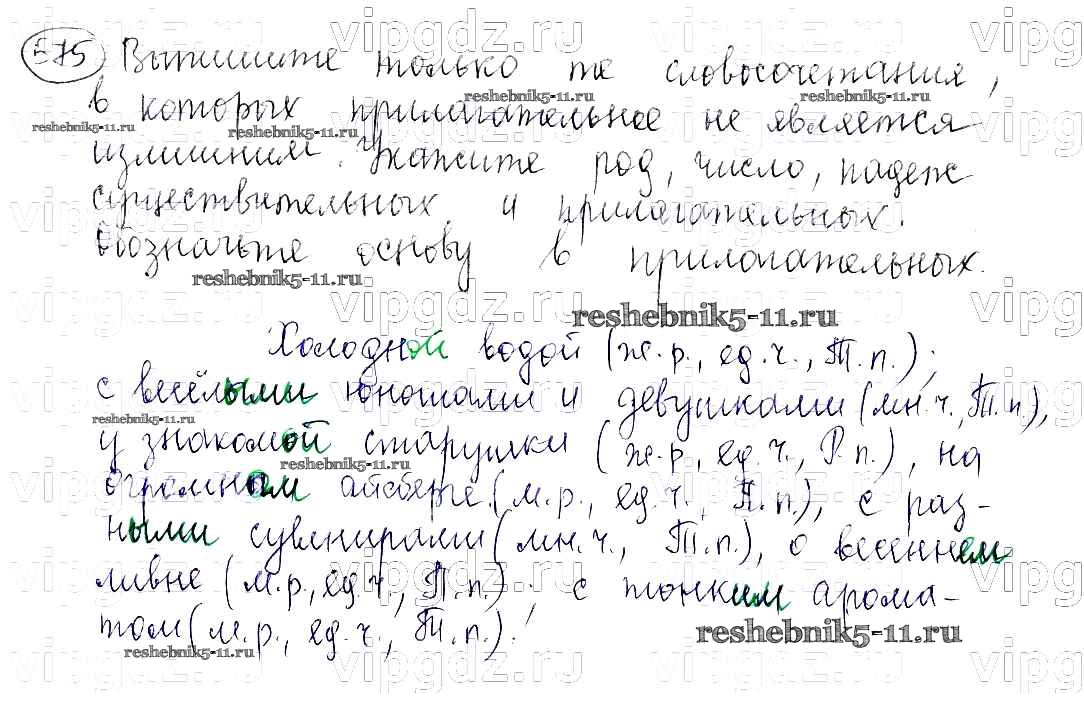 575 Выпишите только те словосочетания,
в которых прилагательное не является
излишним. Укажите род, число, падеж
существительных и прилагательных.
Обозначьте основу в прилагательных.
Холодной водой (ж.р., ед.ч., Т.п.),
с весёлыми юношами и девушками (мн.ч., Т.п.),
у знакомой старушки (ж.р., ед.ч., Р.п.), на
огромном айсберге (м.р., ед.ч., П.п.), с раз-
ными сувенирами (мн.ч., Т.п.), о весеннем
ливне (м.р., ед.ч., П.п.), с тонким арома-
том (м.р., ед.ч., Т.п.).
vipgdz.ru
reshebnik5-11.ru